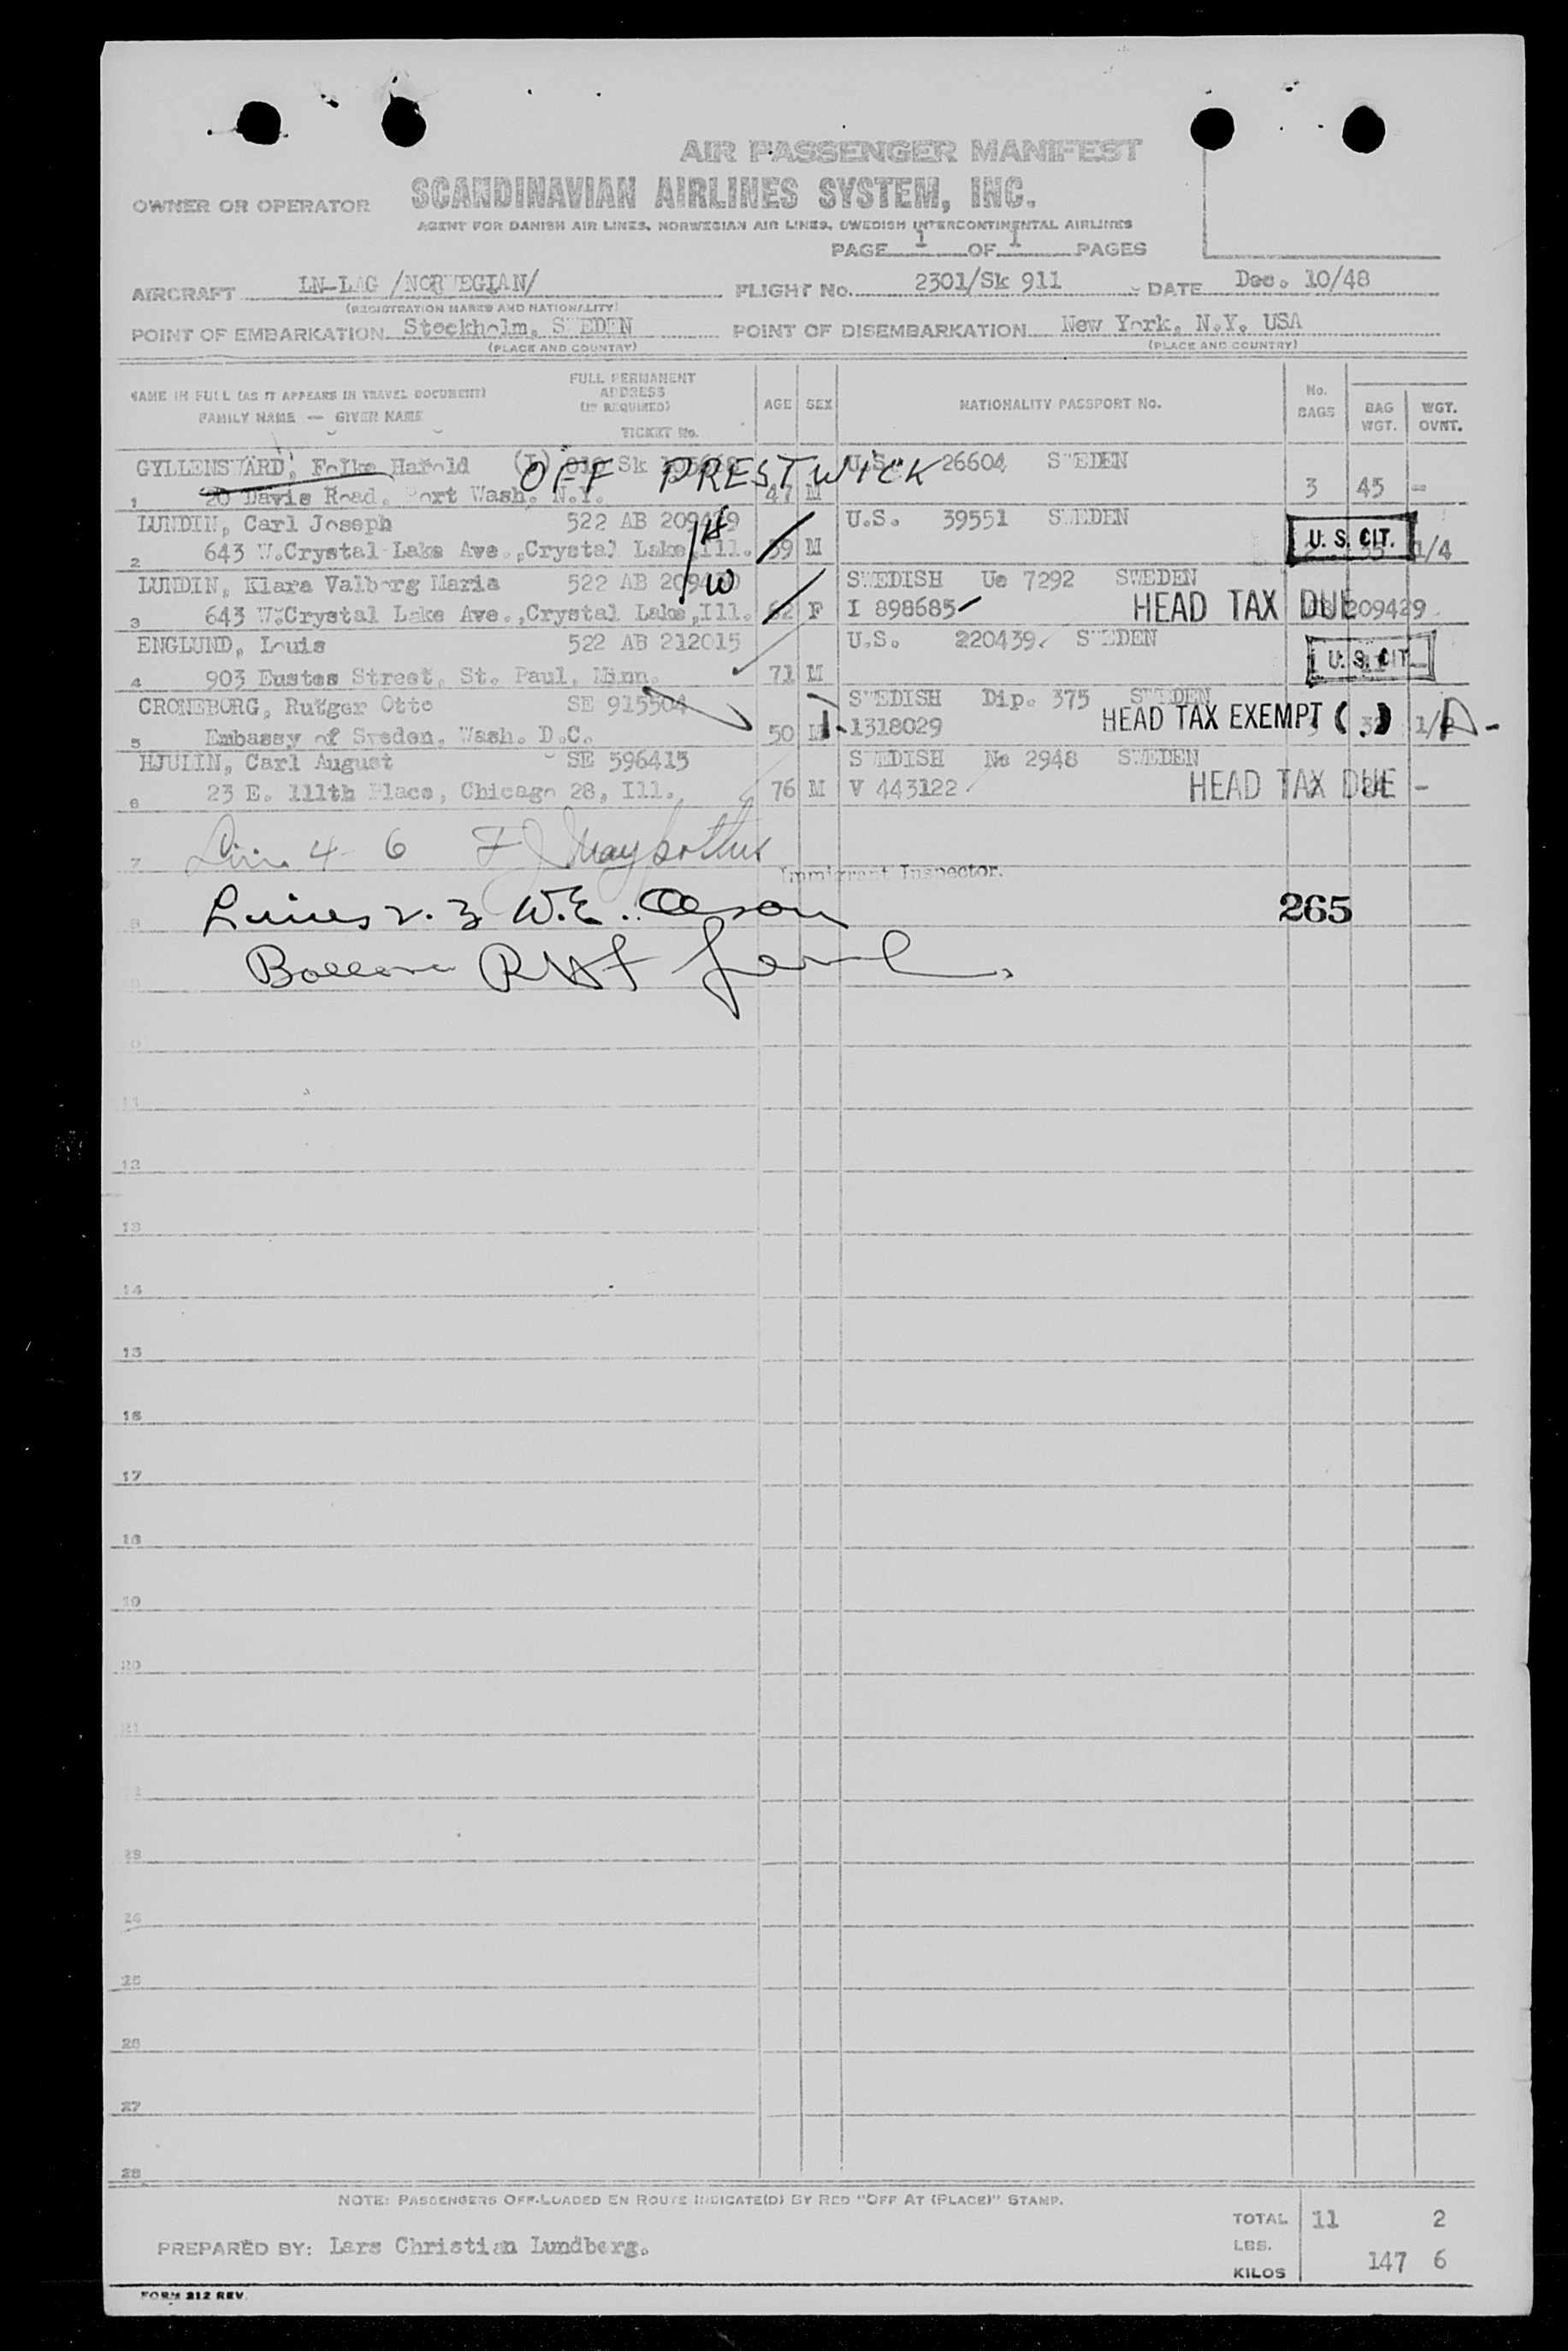 AIR PASSENGER MANIFEST
OWNER OR OPERATOR SCANDINAVIAN AIRLINES SYSTEM, INC.
AGENT FOR DANISH AIR LINES, NORWEGIAN AIR LINES, SWEDISH INTERCONTINENTAL AIRLINES
PAGE 1 OF 1 PAGES
AIRCRAFT LN-LAG /NORWEGIAN/ FLIGHT No. 2301/Sk 911 DATE Dec. 10/48
(REGISTRATION MARKS AND NATIONALITY)
POINT OF EMBARKATION Stockholm, SWEDEN POINT OF DISEMBARKATION New York, N.Y. USA
(PLACE AND COUNTRY) (PLACE AND COUNTRY)
NAME IN FULL (AS IT APPEARS IN TRAVEL DOCUMENT) FAMILY NAME — GIVEN NAME
FULL PERMANENT ADDRESS (IF REQUIRED) TICKET No.
AGE SEX NATIONALITY PASSPORT No. No. BAGS BAG WGT. WGT. OVNT.
GYLLENSWÄRD, Folke Harold Sk U.S. 26604 SWEDEN
OFF PRESTWICK
1 20 Davis Road, Port Wash. N.Y. 47 M 3 45 -
LUNDIN, Carl Joseph 522 AB 209429 U.S. 39551 SWEDEN
H
2 643 W.Crystal Lake Ave.,Crystal Lake,Ill. 59 M U. S. CIT. 1/4
LUNDIN, Klara Valborg Maria 522 AB SWEDISH Ue 7292 SWEDEN
W
3 643 W.Crystal Lake Ave.,Crystal Lake,Ill. 62 F I 898685 HEAD TAX DUE 209429
ENGLUND, Louis 522 AB 212015 U.S. 220439 SWEDEN
4 903 Eustes Street, St. Paul, Minn. 71 M U. S. CIT
CRONEBORG, Rutger Otto SE 915504 SWEDISH Dip. 375 SWEDEN
5 Embassy of Sweden, Wash. D.C. 50 M 1318029 HEAD TAX EXEMPT ( )
HJULIN, Carl August SE 596415 SWEDISH Ne 2948 SWEDEN
6 23 E. 111th Place, Chicago 28, Ill. 76 M V 443122 HEAD TAX DUE -
7 4 - 6
Immigrant Inspector.
8 Lines 2. 3 W.E. Olson 265
9
10
11
12
13
14
15
16
17
18
19
20
21
22
23
24
25
26
27
28
NOTE: PASSENGERS OFF-LOADED EN ROUTE INDICATE(D) BY RED "OFF AT (PLACE)" STAMP.
TOTAL 11 2
PREPARED BY: Lars Christian Lundberg.
LBS.
KILOS 147 6
FORM 212 REV.